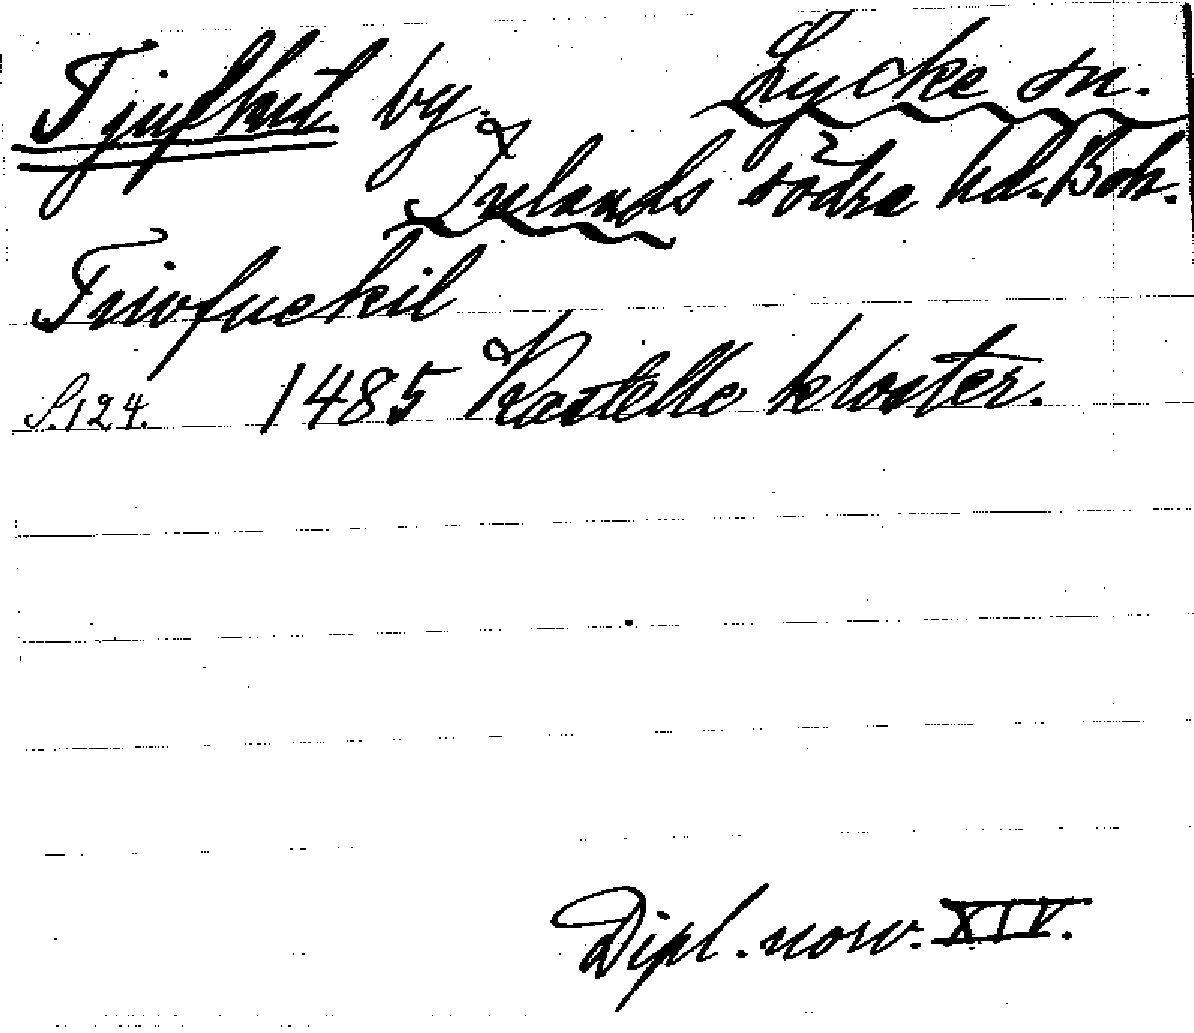 Tjufkil by Lycke sn.
Inlands södra hd. Boh.
Tiwfuekil
S.124. 1485 Kastelle kloster.
Dipl. norv. XIV.